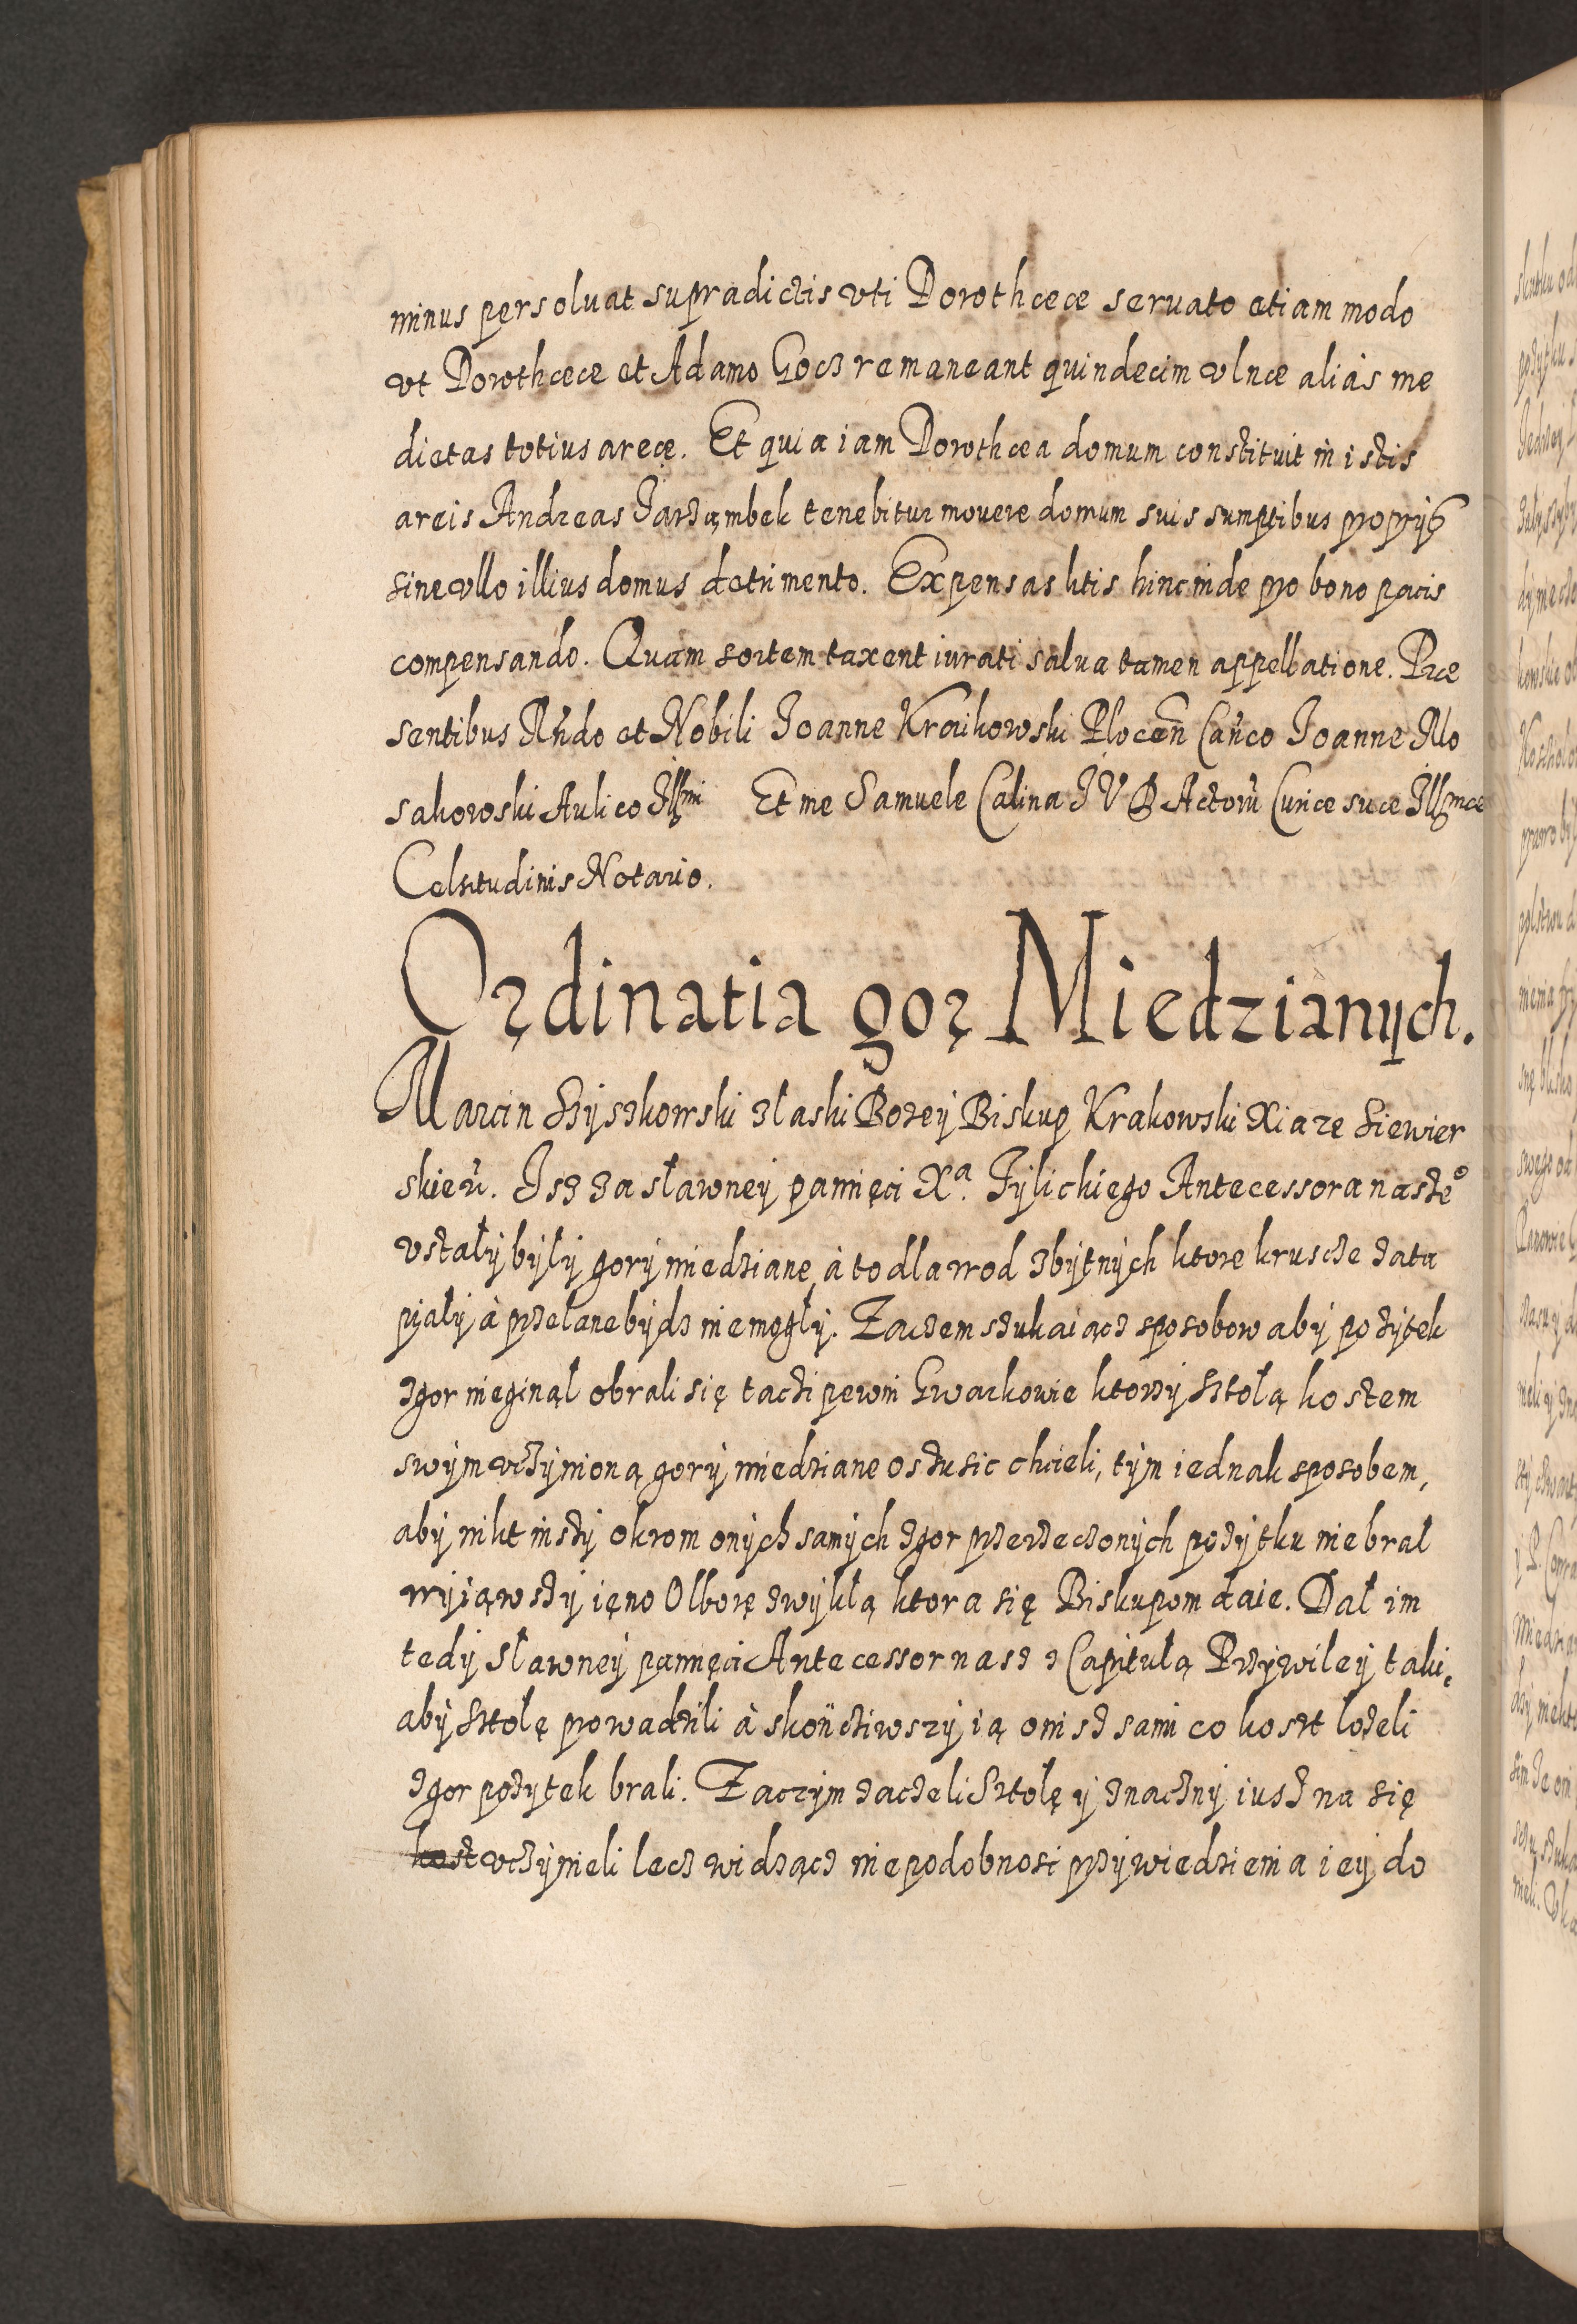 minus persoluat supradictis vti Dorotheæ seruato etiam modo
vt Dorotheæ et Adamo Gocz remaneant quindecim vlnæ aliàs me
dietas totius areæ. Et quia iam Dorothea domum constituit in istis
areis Andreas Jarząmbek tenebitur mouere domum suis sumptibus proprijs
sine vllo illius domus detrimento. Expensas litis hinc inde pro bono pacis
compensando. Quam sortem taxent iurati salua tamen appellatione. Præ
sentibus Rñdo et Nobili Joanne Kraikowski Ploceñ Cañco Joanne Mo
sakowski Aulico Illmi Et me Samuele Calina JVD Actorũ Curiæ suæ Illmæ
Celsitudinis Notario.
Ordinatia gor Miedzianych.
Marcin Szyszkowski zlaski Bozey Biskup Krakowski Xiaze Siewier
skieñ. Jsz za sławney pamięci Xa. Tylickiego Antecessora naszeo
vstały były gory miedziane, à to dla wod zbytnych ktore krusze zata
piały à przelane bydz niemogły. Zaczem szukaiącz sposobow aby pozytek
zgor nieginął obrali się taczi pewni Gwarkowie ktorzy Sztolą kosztem
swym vczynioną gory miedziane oszusic chcieli, tym iednak sposobem,
aby nikt inszy okrom onych samych zgor przerzeczonych pozytku niebral
wyiąwszy ięno Olborę zwykłą ktora się Biskupom daie. Dał im
tedy sławney pamięci Antecessor nasz z Capitułą Przywiley taki,
aby Sztolę prowadzili à skończiwszy ią oni sz sami co koszt lozeli
zgor pozytek brali. Zaczym zaczeli Sztolę y znaczny iusz na się
koszt vczynieli lecz widzącz niepodobnosi przywiedzienia iey do